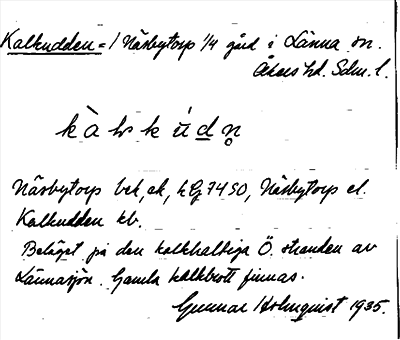 Kalkudden = 1 Näsbytorp 1/4 gård i Länna sn.
Åkers hd. Sdm. l.
Näsbytorp bek, ek, hGj 7450, Näsbytorp el.
Kalkudden kb.
Beläget på den kalkhaltiga Ö. stranden av
Lännasjön. Gamla kalkbrott finnas.
Gunnar Holmquist 1935.